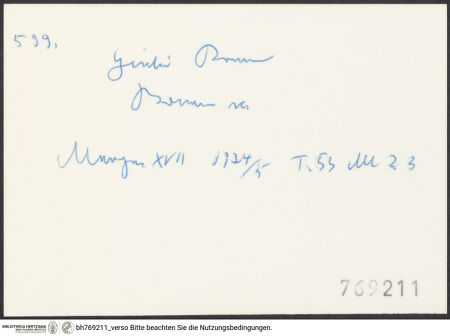 599.
Giulio Romano
XVII 1924/5 T. 53 M 23
769211
BIBLIOTHECA HERTZIANA
bh769211_verso Bitte beachten Sie die Nutzungsbedingungen.